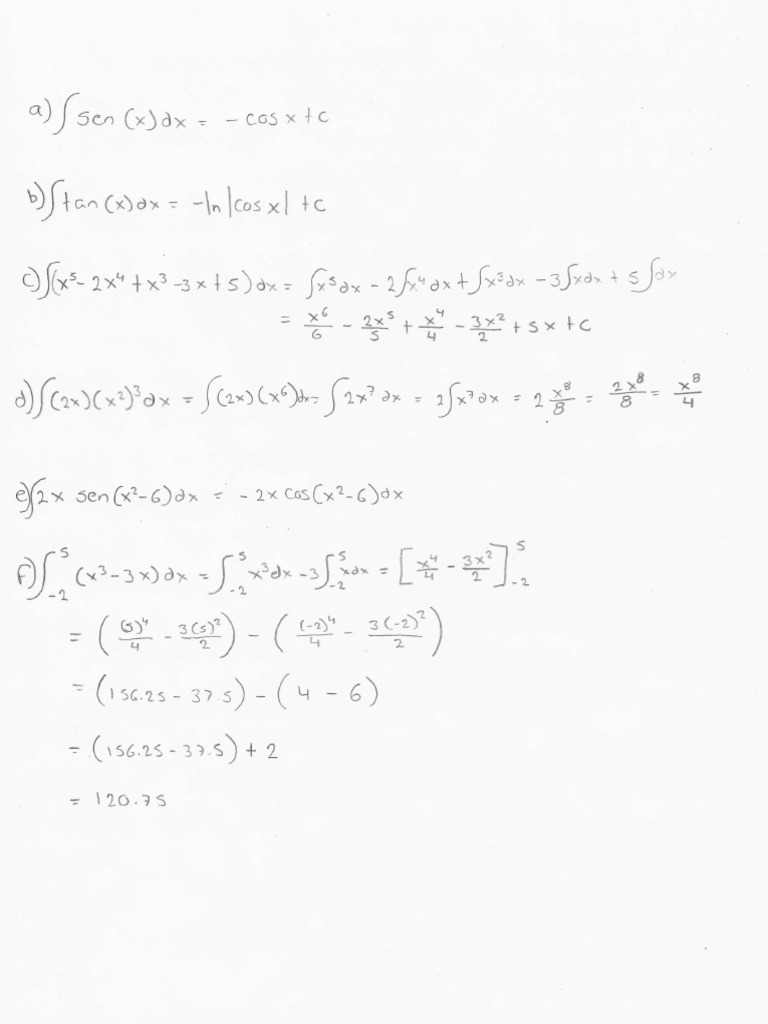 a) ∫ sen (x) dx = - cos x + c
b) ∫ tan (x) dx = -ln |cos x| + c
c) ∫(x⁵ - 2x⁴ + x³ - 3x + 5) dx = ∫x⁵ dx - 2∫x⁴ dx + ∫x³ dx - 3∫x dx + 5∫dx
= x⁶/6 - 2x⁵/5 + x⁴/4 - 3x²/2 + 5x + c
d) ∫(2x)(x²)³ dx = ∫(2x)(x⁶) dx = ∫2x⁷ dx = 2∫x⁷ dx = 2 x⁸/8 = 2x⁸/8 = x⁸/4
e) ∫2x sen (x²-6) dx = - 2x cos (x²-6) dx
f) ∫₋₂⁵ (x³ - 3x) dx = ∫₋₂⁵ x³ dx - 3∫₋₂⁵ x dx = [x⁴/4 - 3x²/2]₋₂⁵
= ((5)⁴/4 - 3(5)²/2) - ((-2)⁴/4 - 3(-2)²/2)
= (156.25 - 37 5) - (4 - 6)
= (156.25 - 37.5) + 2
= 120.75